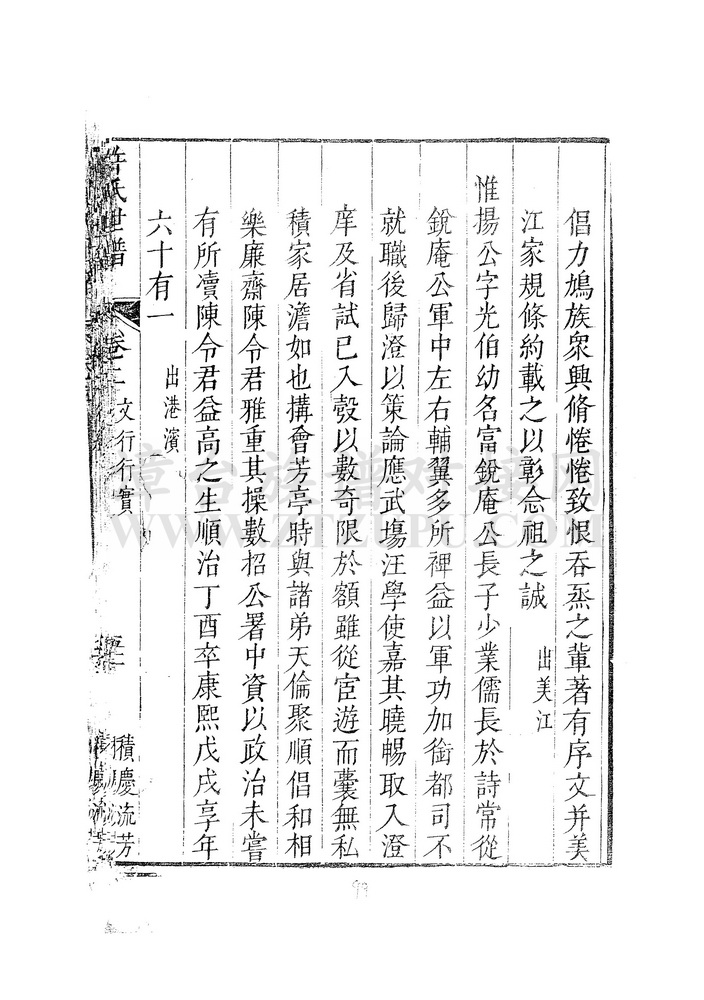 倡力鳩族眾興脩惓惓致恨吞烝之輩著有序文并美
江家規條約載之以彰念祖之誠 出美江
惟揚公字光伯幼名富銳庵公長子少業儒長於詩常從
銳庵公軍中左右輔翼多所裨益以軍功加銜都司不
就職後歸澄以策論應武場汪學使嘉其曉暢取入澄
庠及省試已入彀以數奇限於額雖從宦遊而囊無私
積家居澹如也搆會芳亭時與諸弟天倫聚順倡和相
樂廉齋陳令君雅重其操數招公署中資以政治未嘗
有所瀆陳令君益高之生順治丁酉卒康熙戊戌享年
六十有一 出港濱
許氏世譜 卷二 文行行實 積慶流芳
章台族譜对接网
WWW.ZTZUPU.COM
99